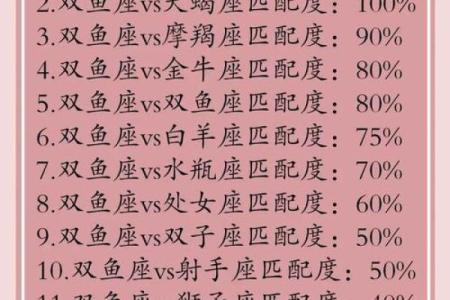 2.双鱼座vs天蝎座匹配度：100%
3.双鱼座vs摩羯座匹配度：90%
4.双鱼座vs金牛座匹配度：80%
5.双鱼座vs双鱼座匹配度：80%
6.双鱼座vs白羊座匹配度：75%
7.双鱼座vs水瓶座匹配度：70%
8.双鱼座vs处女座匹配度：60%
9.双鱼座vs双子座匹配度：50%
10.双鱼座vs射手座匹配度：50%
11.双鱼座vs狮子座匹配度：40%